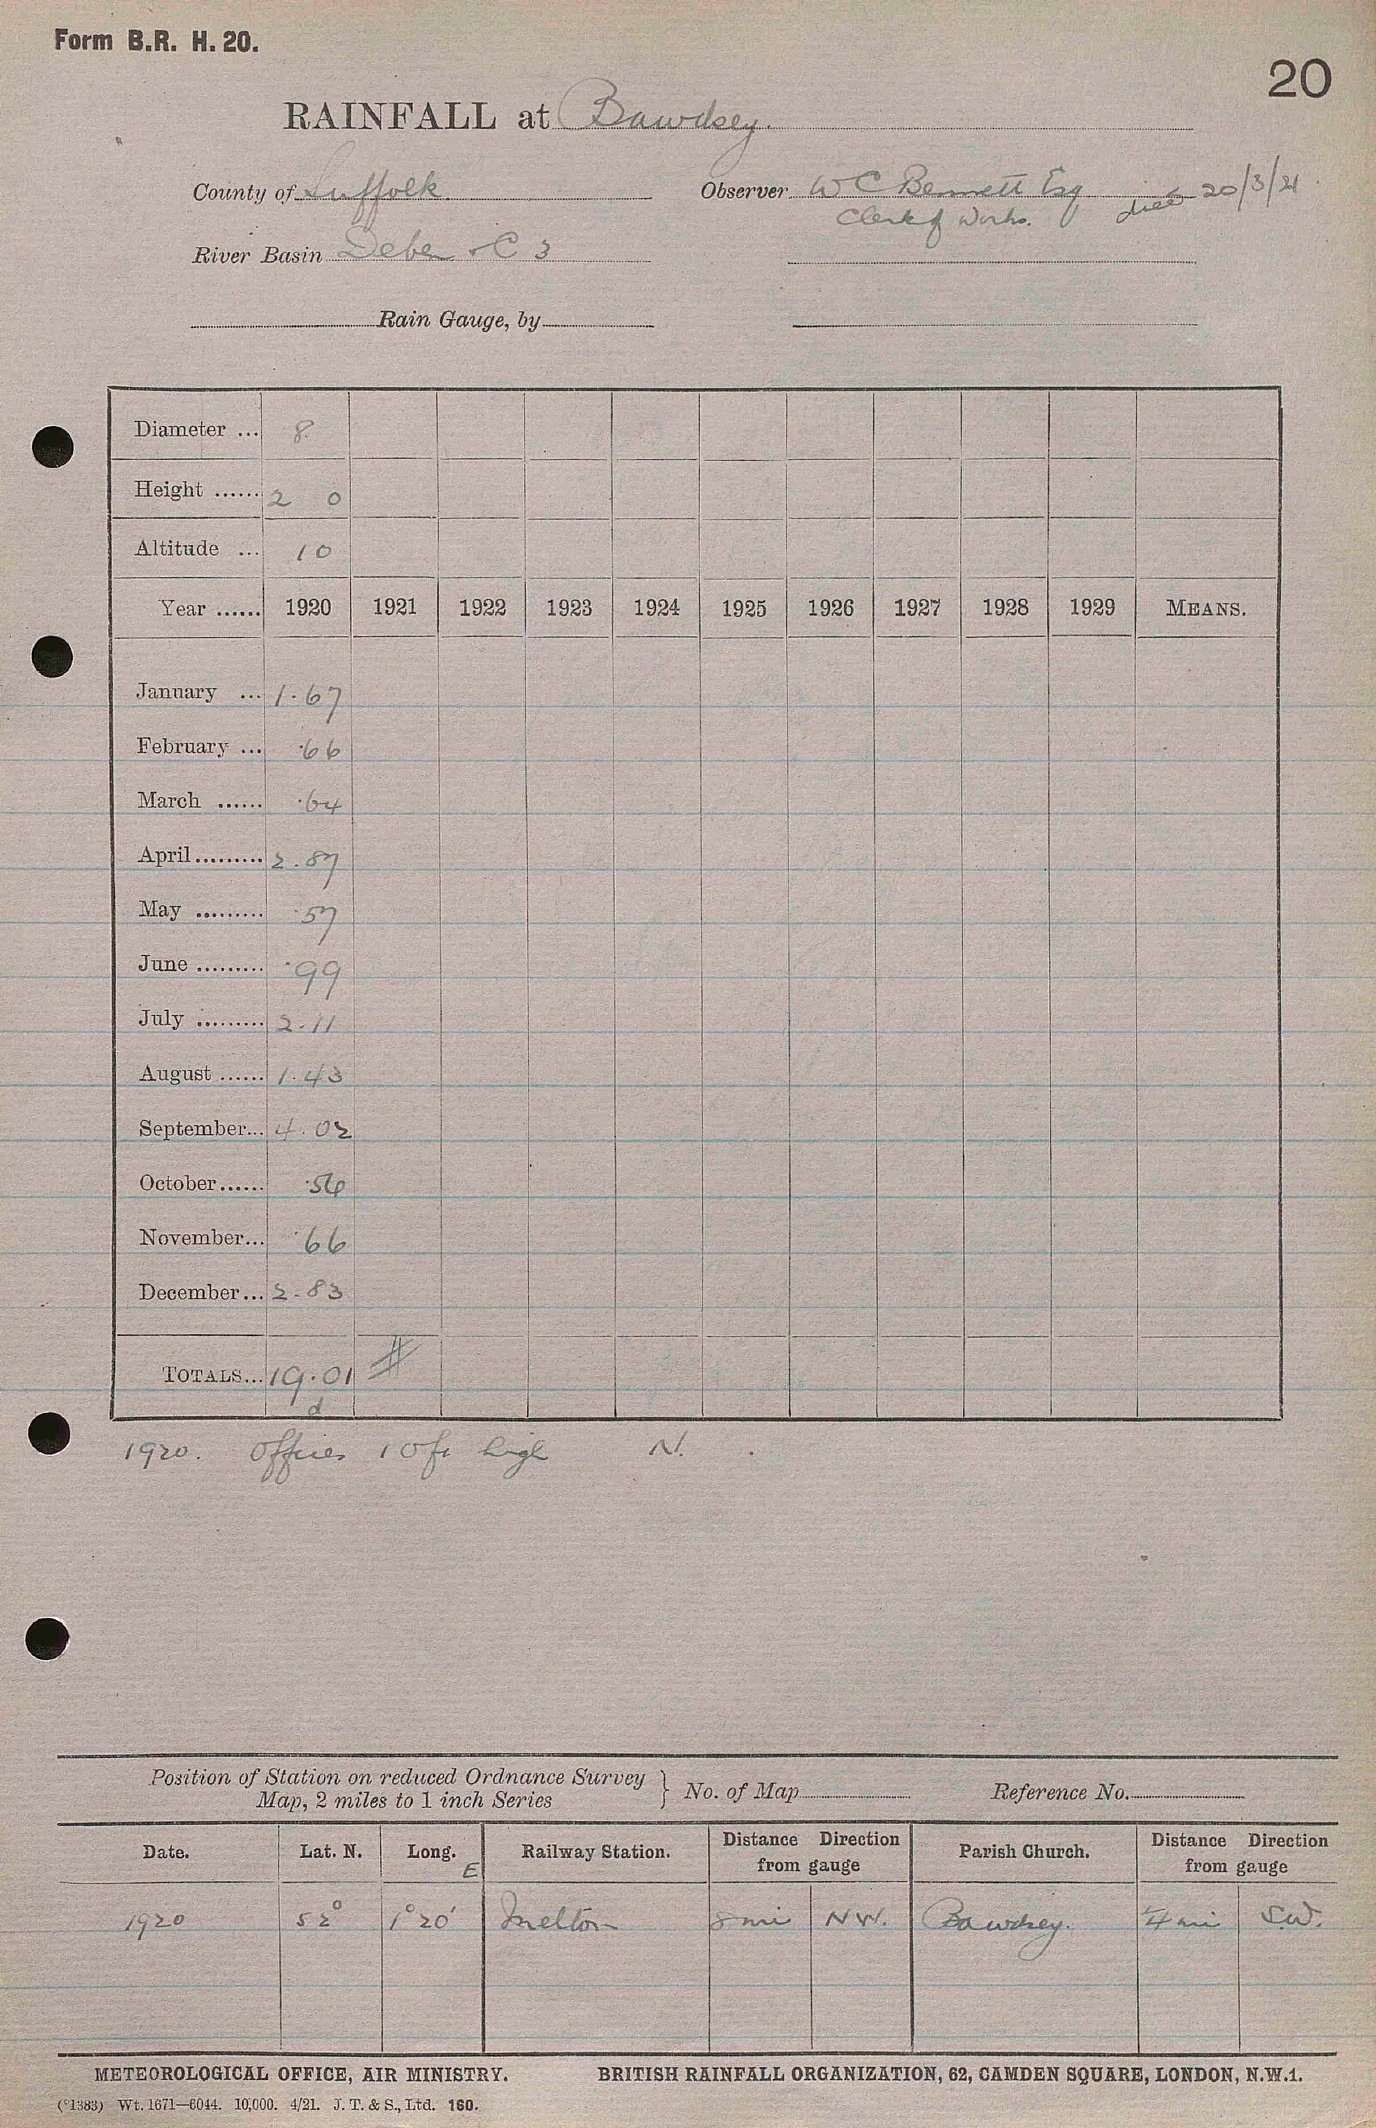 Form B.R. H. 20.
20
RAINFALL at Bawdsey.
County of Suffolk. Observer W C Bennett Esq died 20/3/21
Clerk of Works.
River Basin Deben + C 3
Rain Gauge, by
Diameter ... 8
Height ...... 2 0
Altitude ... 10
Year ...... 1920 1921 1922 1923 1924 1925 1926 1927 1928 1929 MEANS.
January ... 1.67
February ... .66
March ...... .64
April......... 2.87
May ......... .57
June ......... .99
July ......... 2.11
August ...... 1.43
September... 4.02
October...... .56
November... .66
December... 2.83
TOTALS... 19.01 #
d
1920. Offices 10 ft high N.
Position of Station on reduced Ordnance Survey Map, 2 miles to 1 inch Series } No. of Map Reference No.
Date. Lat. N. Long. E Railway Station. Distance Direction from gauge Parish Church. Distance Direction from gauge
1920 52° 1°20' Melton 8 mi N W. Bawdsey. mi S.W.
METEOROLOGICAL OFFICE, AIR MINISTRY. BRITISH RAINFALL ORGANIZATION, 62, CAMDEN SQUARE, LONDON, N.W.1.
(*1383) Wt. 1671—6044. 10,000. 4/21. J. T. & S., Ltd. 160.